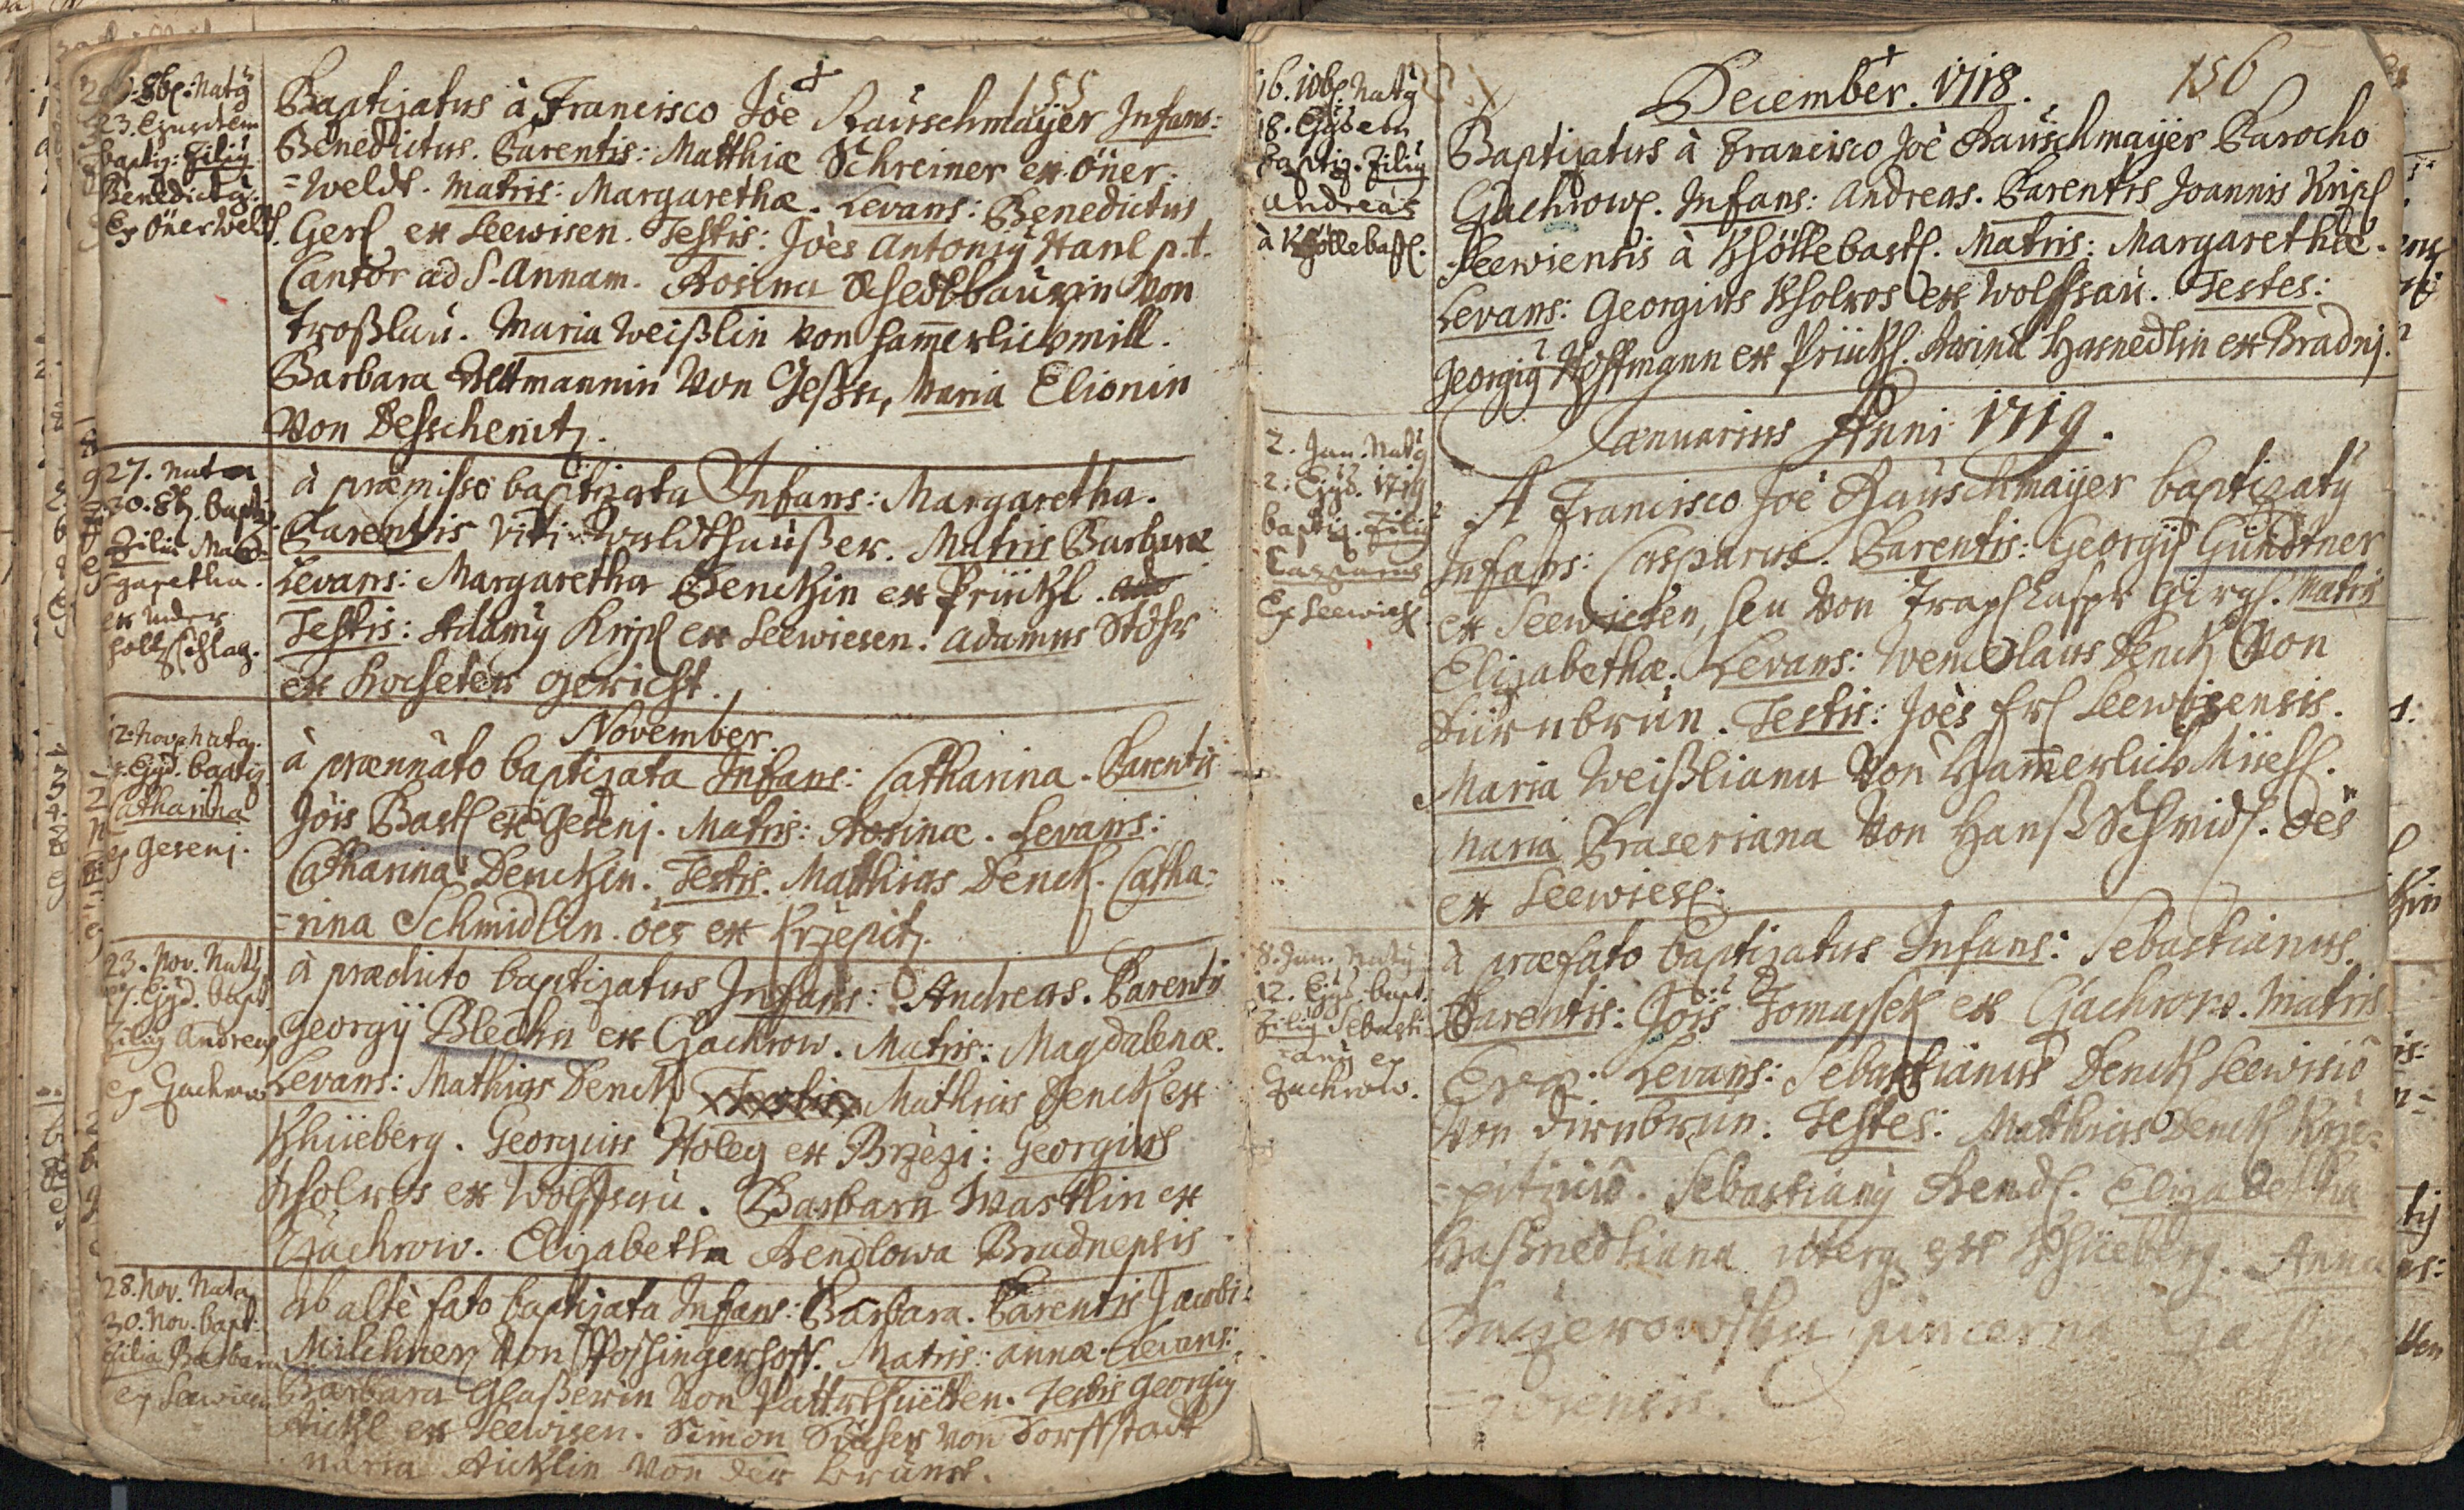 155
8b. Natq
23. Ejusdem
baptiz: Filiq
Benedictq.
Ex önerweldt
Baptizatus à Francisco Joë Rauschmaÿer Infans:
Benedictus. Parentis: Matthiæ Schreiner ex öner-
=weldt. Matris: Margarethæ. Levans: Benedictus
Gerl ex Seewisen. Testis: Joës Antonÿ Hanl p.t.
Cantor ad S. Annam. Rosina Schedlbaurin Von
Troßlau. Maria Weißlin von Ham̅erlickmill.
Barbara Von Geßn, Maria Elionin
Von Desschenitz.
27. Nata
30. 8b. bapti
Filia Mar=
=garetha.
ex Inder
Holtzschlag.
à præmisso baptizata Infans: Margaretha.
Parentis Viti Waldthaußer. Matris Barbaræ
Levans: Margaretha Denckin ex Prückl.
Testis: Adamq Kripl ex Seewiesen. Adamus Stöhr
ex Kocheten gericht.
November.
12. Nov. natq.
Ejd. baptiz
Catharina
ex gesenj.
à prænnato baptizata Infans: Catharina. Parentis
Jöis Bastl ex Gesenj. Matris: Rosinæ. Levans:
Catharina Denckin. Testis. Matthias Denck. Catha:
=rina Schmidlin. öes ex Krzepitz.
23. Nov. Natq.
Ejd. bapt
Filiq Andreas
ex Gachrow
à prædicto baptizatus Infans: Andreas. Parentis
Georgÿ Blecha ex Gachrow. Matris: Magdalenæ.
Levans: Mathias Denck Testis Mathias Denck ex
Khüeberg. Georgius Holeg ex Brzezi: Georgius
Kholros ex Wolfsau. Barbara Wastlin ex
Gachrow. Elizabetha Rendlowa Bradnensis
28. Nov. Nata
30. Nov. bapt:
Filia Barbara
ex Seewisen
ab altè fato baptizata Infans: Barbara. Parentis Jacobi
Milchner Von Possingerhoff. Matris: Annæ. Levans:
Barbara Glaßerin Von Patterlhuëtten. Testis Georgiq
Aickl ex Seewisen. Simon Von Dorffstadt
Maria Aicklin Von der Brunst.
156
December. 1718.
16. 10b. Natq
18. Ejsdem
baptiz. Filiq
Andreas
à Khöllebastl.
Baptizatus à Francisco Joë Rauschmaÿer Parocho
Gachrow. Infans: Andreas. Parentis Joannis Kripl
Seewiensis à Khöllebastl. Matris: Margarethæ.
Levans: Georgius Kholros ex Wolffsau. Testes:
Georgiq Hoffmann ex Prückl. Rosina Hasnedlin ex Bradnj.
Januarius Anni 1719.
2. Jan. Natq
2. Ejsd. 1719
baptiz. Filiq
Casparus
Ex Seewiesl
A Francisco Joë Rauschmaÿer baptizatq
Infans: Casparus. Parentis: Georgÿ Gündtner
ex Seewiesen, seu Von Girgl. Matris
Elizabethæ. Levans: Wenceslaus Denck Von
Dürnbrun. Testis: Joës Erl Seewisensis.
Maria Weißliana Von Ham̅erlickMüehl.
Maria Praseriana Von Hanß Schmidl. öes
ex Seewiesl.
8. Jan. Natq
12. Ejsd. bapt.
Filiq Sebasti=
=anq ex
Gachrow.
à præfato baptizatus Infans: Sebastianus.
Parentis: Jois Tomassek ex Gachrow. Matris
Evæ. Levans: Sebastianus Denck Seewisiö
Von Dirnbrun. Testes: Matthias Denck Krze=
=pitziö. Sebastianq Rendl. Elizabetha
Haßnedliana uterq ex Khüeberg. Anna
pincerna Gach
=